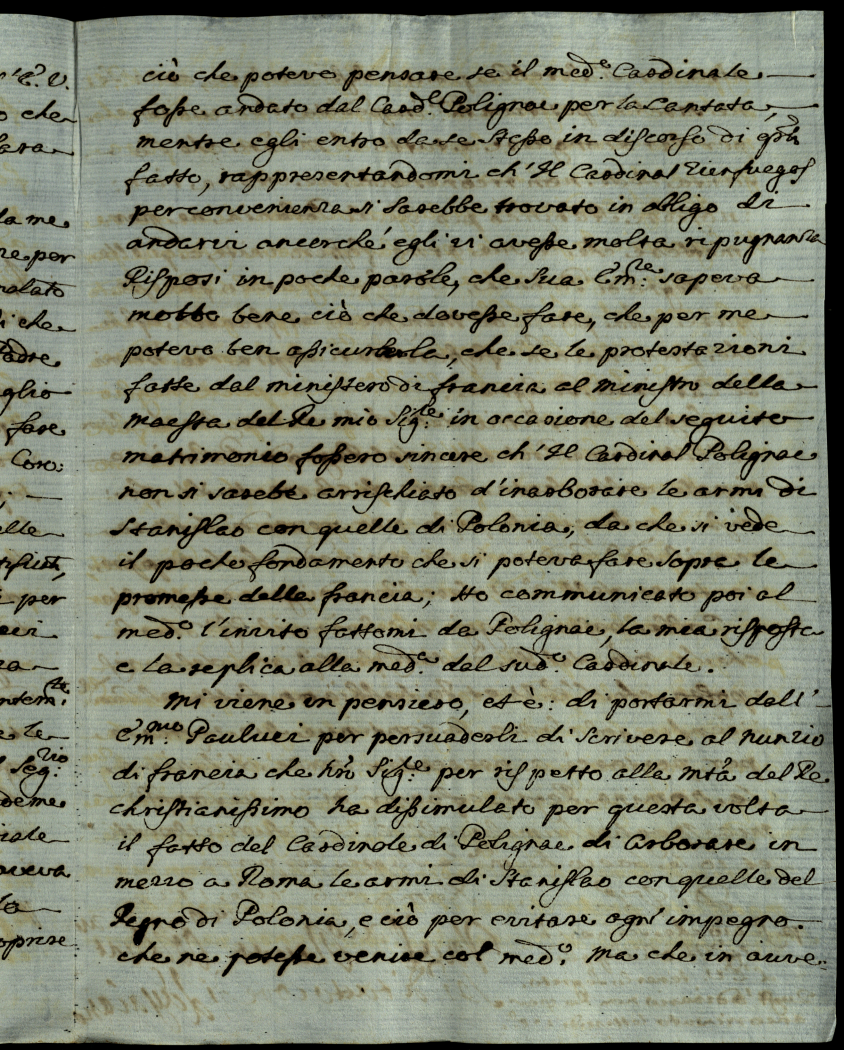 n'E.ª V.
o che
fara
la me
ne per
nolato
i che
Padre
glio
fare
Coro:
; —
elle
per
a
e le
Seg.rio
deme
oveva
lo
oprire
ciò che poteva pensare se il med.º Cardinale —
fosse andato dal Card.l Polignac per la Cantata,
mentre egli entro da se stesso in discorso di q̃sto
fatto, rappresentandomi ch'Il Cardinal Zienfuegos
per convenienza si sarebbe trovato in obligo di
andarvi ancorche' egli vi avesse molta ripugnanza
Risposi in poche parole, che sua Em.ze sapeva
molto bene ciò che dovesse fare, che per me
poteva ben assicurarla, che se le protestazioni
fatte dal ministero di francia al ministro della
Maestà del Re mio Sig.re in occasione del seguito
matrimonio fossero sincere ch'Il Cardinal Polignac
non si sarebe arrischiato d'inarborare le armi di
Stanislao con quelle di Polonia, da che si vede
il poche fondamento che si poteva fare sopra le
promesse della francia; Ho communicato poi al
med.º l'invito fattomi da Polignac, la mia risposta
e la replica alla med.ª del sud.º Cardinale.
Mi viene in pensiero, et è: di portarmi dall'
Em.mo Pauluci per persuaderli di scrivere al nunzio
di francia che n̄ro Sig.re per rispetto alla Mtà del Re
christianissimo ha dissimulato per questa volta
il fatto del Cardinale di Polignac di Arborare in
mezzo a Roma le armi di Stanislao con quelle del
Regno di Polonia, e ciò per evitare ogni impegno
che ne potesse venire col med.º Ma che in avve-